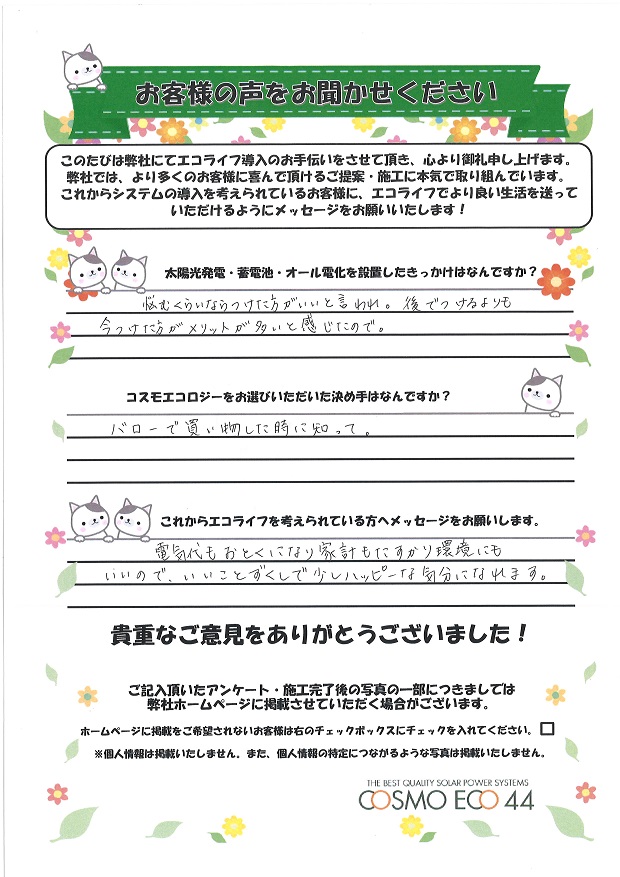 お客様の声をお聞かせください
このたびは弊社にてエコライフ導入のお手伝いをさせて頂き、心より御礼申し上げます。
弊社では、より多くのお客様に喜んで頂けるご提案・施工に本気で取り組んでいます。
これからシステムの導入を考えられているお客様に、エコライフでより良い生活を送って
いただけるようにメッセージをお願いいたします！
太陽光発電・蓄電池・オール電化を設置したきっかけはなんですか？
悩むくらいならつけた方がいいと言われ。後でつけるよりも
今つけた方がメリットが多いと感じたので。
コスモエコロジーをお選びいただいた決め手はなんですか？
バローで買い物した時に知って。
これからエコライフを考えられている方へメッセージをお願いします。
電気代もおとくになり家計もたすかり環境にも
いいので、いいことずくしで少しハッピーな気分になれます。
貴重なご意見をありがとうございました！
ご記入頂いたアンケート・施工完了後の写真の一部につきましては
弊社ホームページに掲載させていただく場合がございます。
ホームページに掲載をご希望されないお客様は右のチェックボックスにチェックを入れてください。
※個人情報は掲載いたしません。また、個人情報の特定につながるような写真は掲載いたしません。
THE BEST QUALITY SOLAR POWER SYSTEMS
COSMO ECO 44